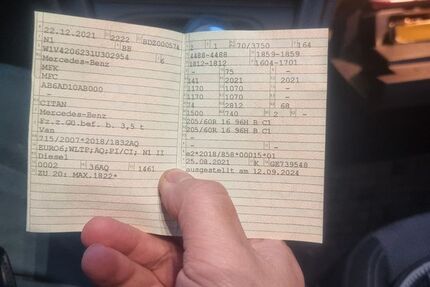 22.12.2021 2222 BDZ000574
N1 BB
W1V4206231U302954 6
Mercedes-Benz
MFK
MFC
AB6AD10AB000
-
CITAN
Mercedes-Benz
Fz.z.Gü.bef.b. 3,5 t
Van
715/2007*2018/1832AQ
EURO6;WLTP;AQ;PI/CI; N1 II
Diesel
0002 36AQ 1461
ZU 20: MAX.1822*
2 1 70/3750 164
4488-4488 1859-1859
1812-1812 1604-1701
- 75 -
141 2021 2021
1170 1070 -
1170 1070 -
74 2812 68
1500 740 2 -
205/60R 16 96H B C1
205/60R 16 96H B C1
-
-
e2*2018/858*00015*01
25.08.2021 K GE739548
ausgestellt am 12.09.2024